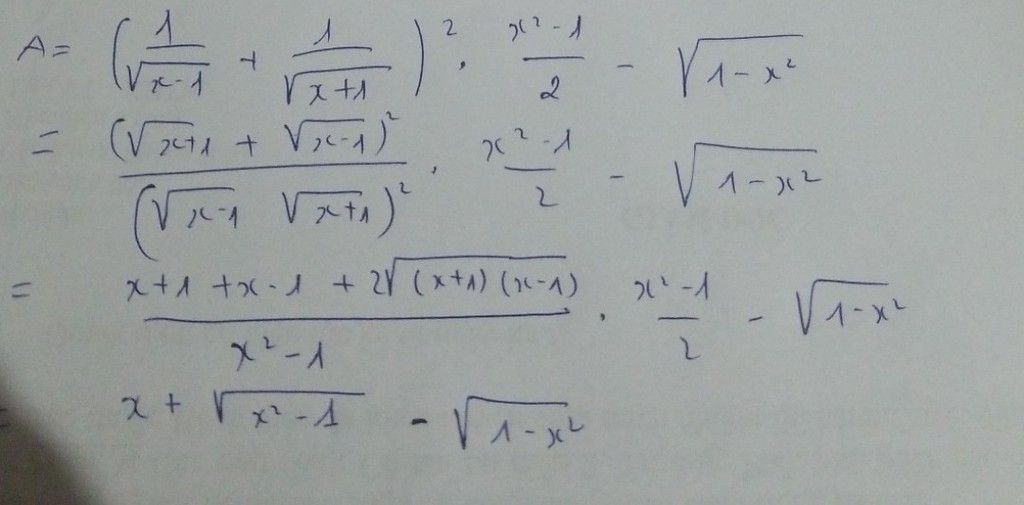 A = (1/√(x-1) + 1/√(x+1))² . (x²-1)/2 - √(1-x²)
= (√(x+1) + √(x-1))²/(√(x-1) √(x+1))² . (x²-1)/2 - √(1-x²)
= (x+1+x-1+2√((x+1)(x-1)))/(x²-1) . (x²-1)/2 - √(1-x²)
= x + √(x²-1) - √(1-x²)